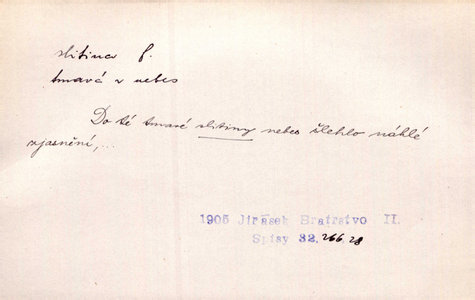 slitina f.
tmavá v nebes
Do té tmavé slitiny nebes šlehlo náhlé
zjasnění,...
1905 Jirásek Bratrstvo II.
Spisy 32, 266.28